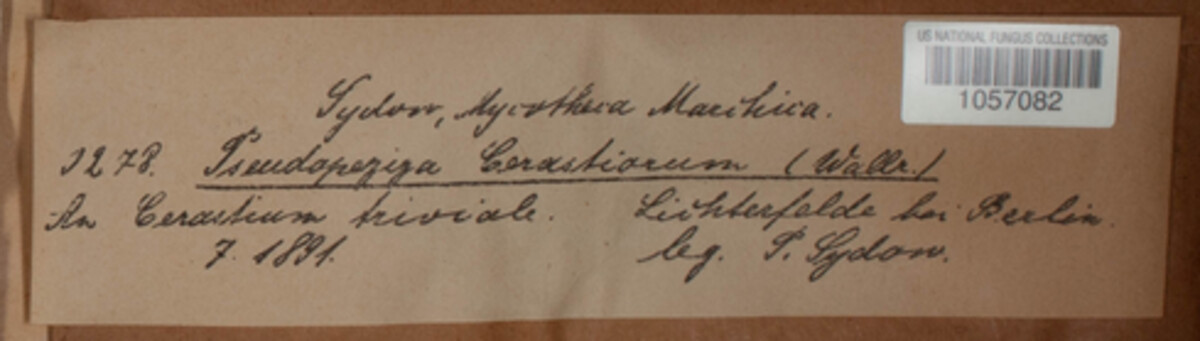 US NATIONAL FUNGUS COLLECTIONS
1057082
Sydow, Mycotheca Marchica.
3278. Pseudopeziza Cerastiorum (Wallr.)
An Cerastium triviale. Lichterfelde bei Berlin.
7. 1891. leg. P. Sydow.